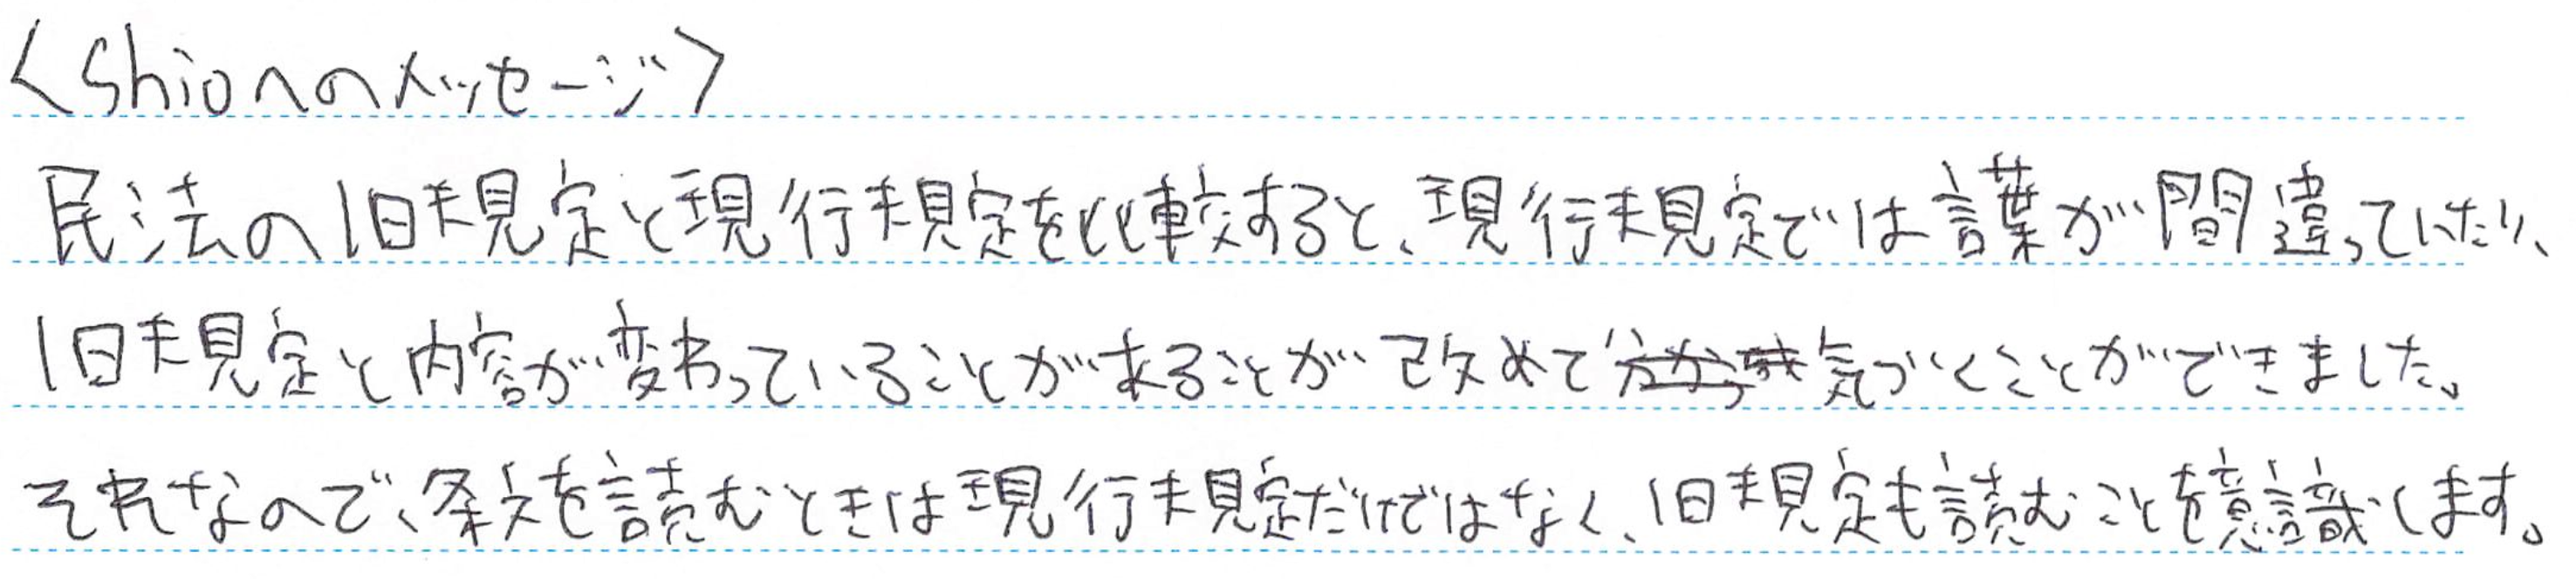 〈shioへのメッセージ〉
民法の旧規定と現行規定を比較すると、現行規定では言葉が間違っていたり、
旧規定と内容が変わっていることがあることが改めて気づくことができました。
それなので、条文を読むときは現行規定だけではなく、旧規定も読むことを意識します。